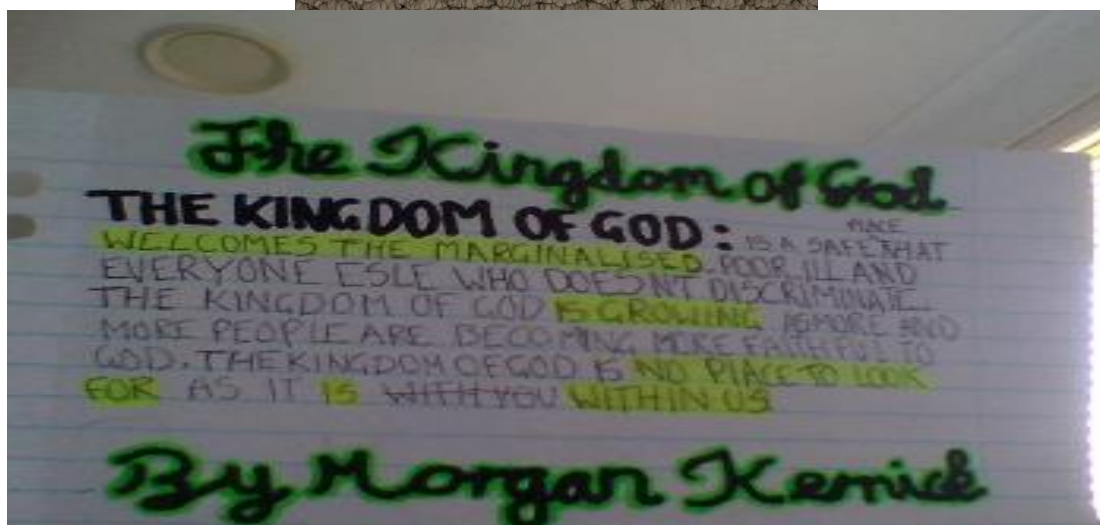 The Kingdom of God
THE KINGDOM OF GOD: IS A SAFE PLACE THAT
WELCOMES THE MARGINALISED. POOR, ILL AND
EVERYONE ESLE WHO DOESNT DISCRIMINATE.
THE KINGDOM OF GOD IS GROWING AS MORE AND
MORE PEOPLE ARE BECOMING MORE FAITHFUL TO
GOD. THE KINGDOM OF GOD IS NO PLACE TO LOOK
FOR AS IT IS WITH YOU WITHIN US
By Morgan Kernick